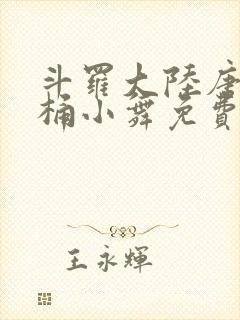 斗羅大陸唐
桶小舞免費
王永輝